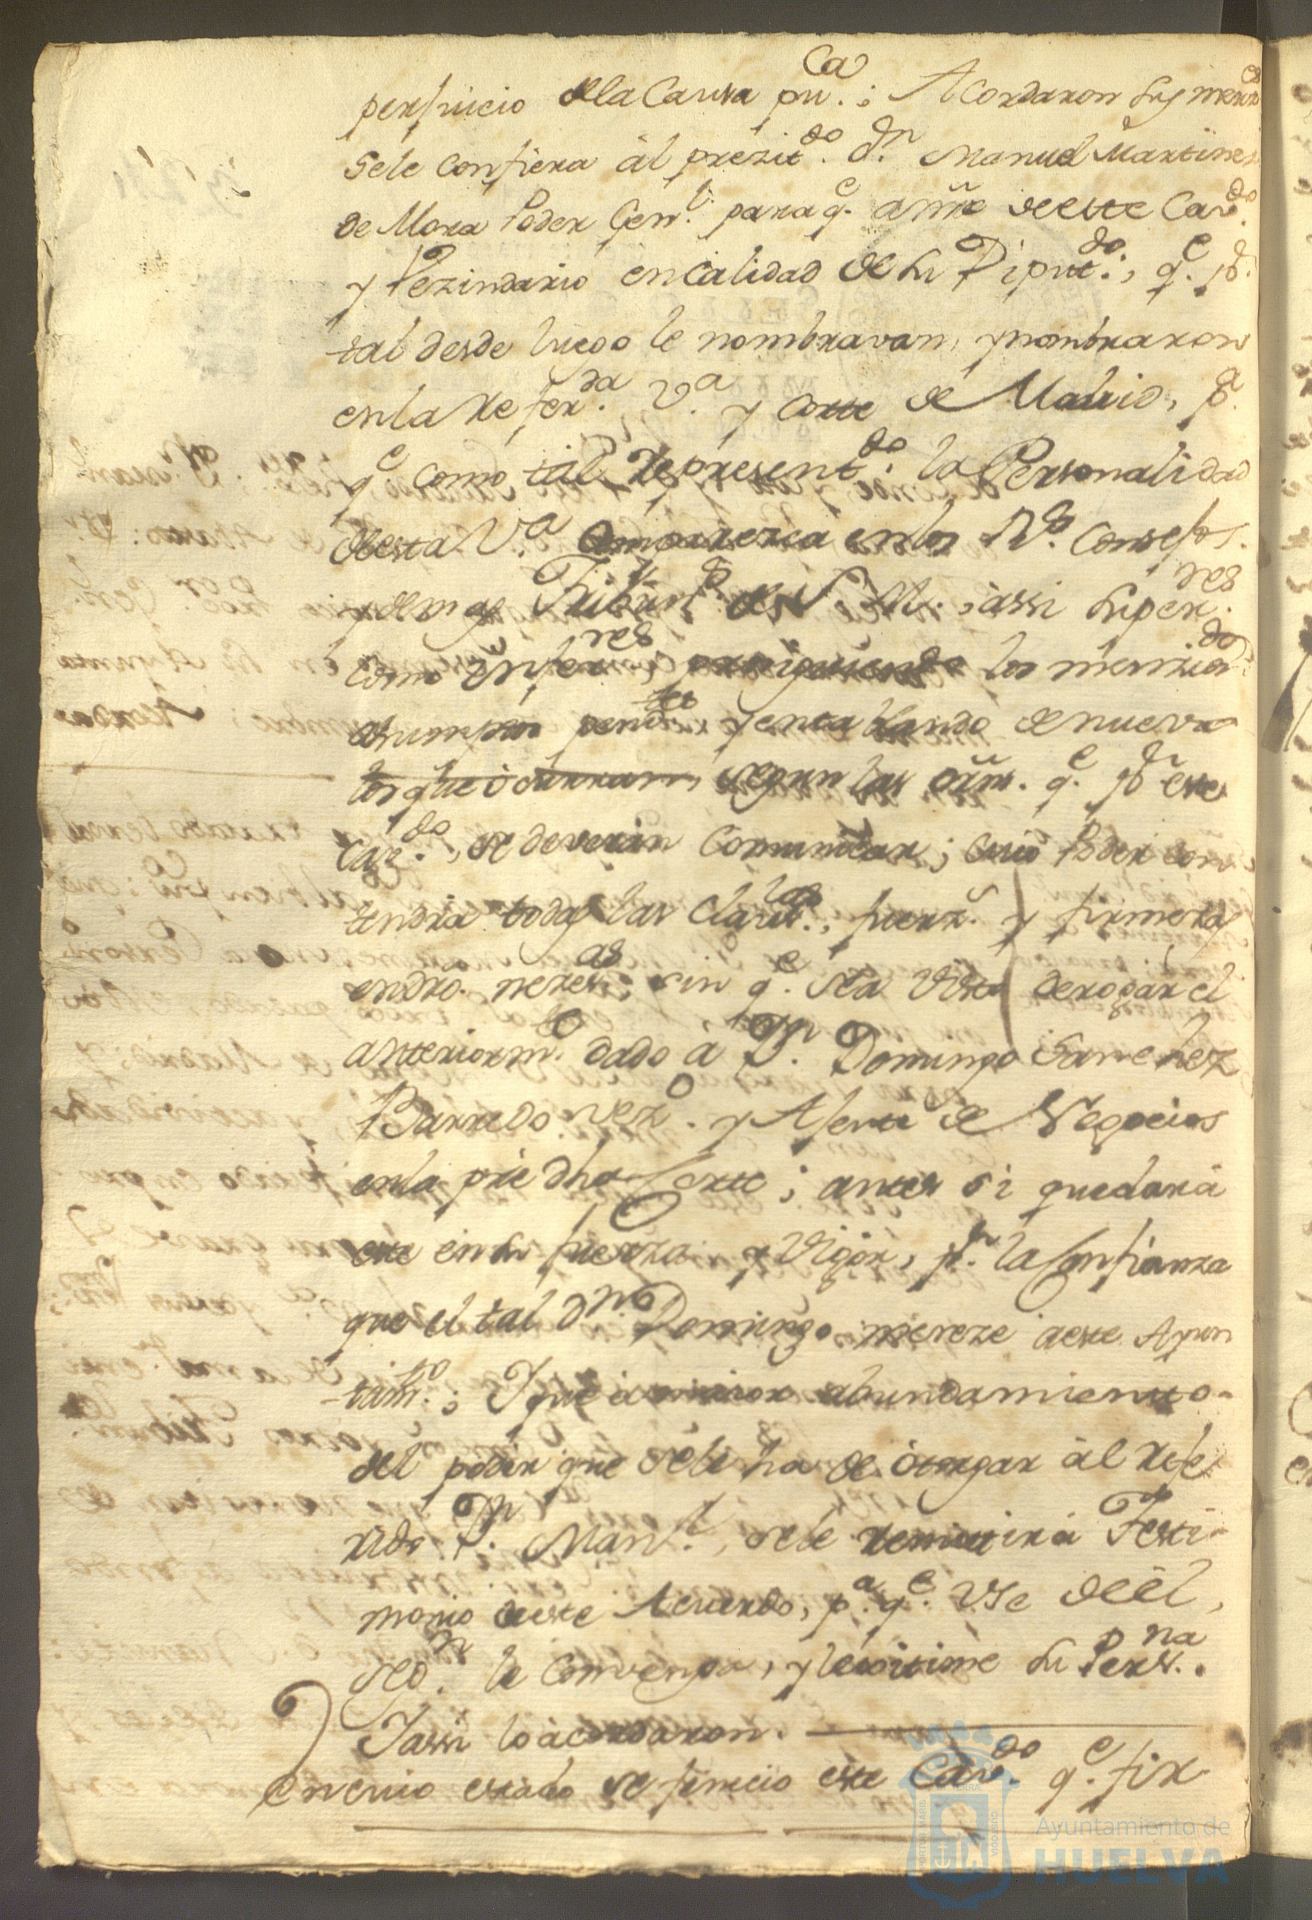 perjuicio dela Causa pu.ca; Acordaron sus mrzs
sele confiera âl prezit.do Dn. Manuel Martines
de Mora Poder Gen.l para q.e a nre deeste Cav.do
y Vezindario encalidad de su Diput.do, q.e pr.
tal desde luego le nombravan, ynombraron
enla Refer.da V.a y Corte de Madrid, p.a
q.e como tal Represent.do la Personalidad
desta V.a Comparezca enlos R.s Consejos.
ydemas Tribun.s de S. M., assi Super.res
como Infer.res prosiguiendo los menzion.dos
asumptos pend.tes yentablando denuevo
los que ocurran, segun las orns. q.e pr este
Cav.do, se deverán Comunicar; cuio Poder con
tendra todas las Claus.las, fuerz.s y firmezas
endro. nezes.as; sin q.e sea visto derogar el
anteriorm.te dado â Dn. Domingo Sanchez
Barredo vez.o y Ajente de Negocios
enla pre dha Corte; antes si quedarâ
este ensu fuerza y Vigor, pr. la Confianza
que el tal Dn. Domingo mereze âeste Ayun
tam.to; Y que âmaior abundamiento
del poder que sele ha de otorgar âl Refe
rido Dn. Man.l, sele remitirâ Testi-
monio deeste Acuerdo, p.a q.e Vse deêl,
seg.n le Convenga, ylexitime su Pers.na.
Yassi lo âcordaron.
Enecuio estado se feneció este Cav.do q.e fir
Ayuntamiento de
HUELVA